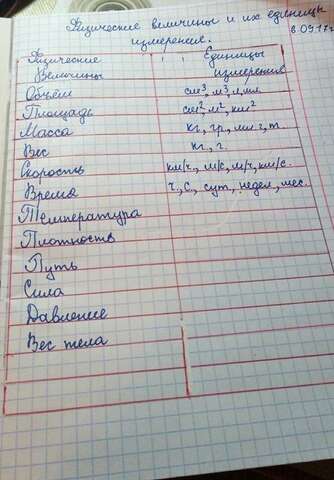 Физические величины и их единицы
измерения. 8.09.17г
Физические Единицы
Величины измерения
Объём см³, м³, л, мл
Площадь см², м², км²
Масса кг, гр, мг, т.
Вес кг, г.
Скорость км/ч, м/с, м/ч, км/с.
Время ч., с, сут, недел, мес.
Температура
Плотность
Путь
Сила
Давление
Вес тела